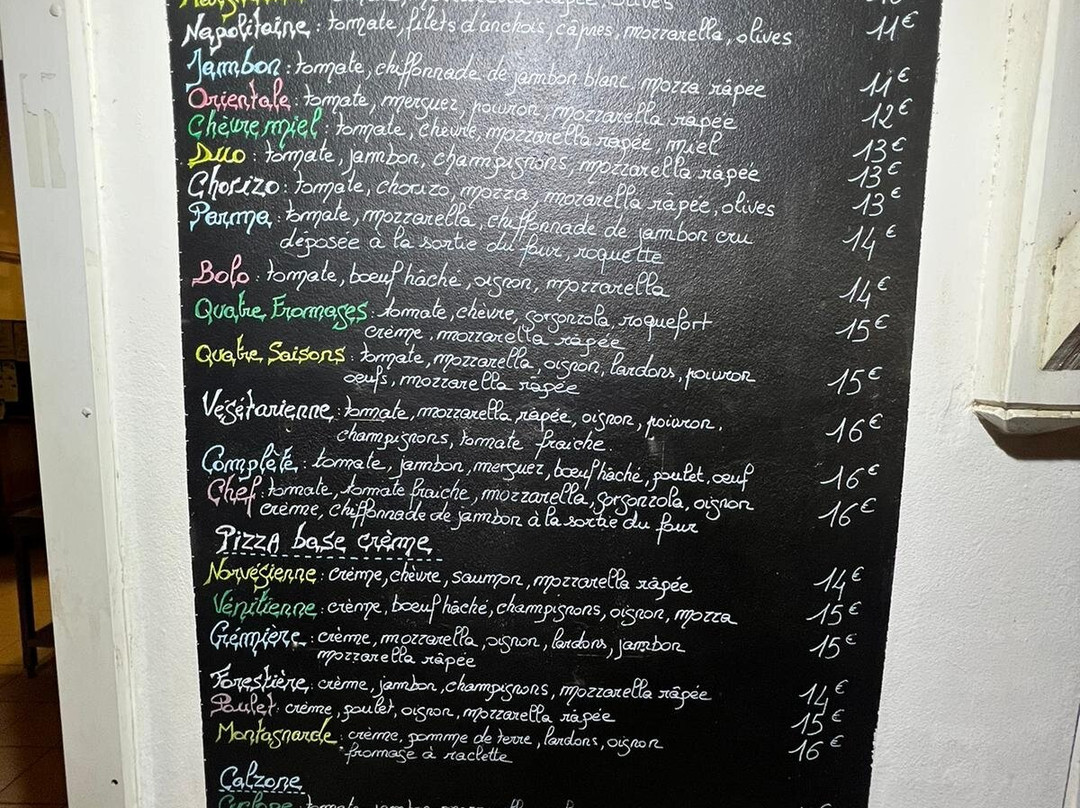 mozzarella râpée, olives
Napolitaine : tomate, filets d'anchois, câpres, mozzarella, olives 11€
Jambon : tomate, chiffonnade de jambon blanc, mozza râpée 11€
Orientale : tomate, merguez, poivron, mozzarella râpée 12€
Chèvre miel : tomate, chèvre, mozzarella râpée, miel 13€
Duo : tomate, jambon, champignons, mozzarella râpée 13€
Chorizo : tomate, chorizo, mozza, mozarella râpée, olives 13€
Parma : tomate, mozzarella, chiffonnade de jambon cru
déposée à la sortie du four, roquette 14€
Bolo : tomate, bœuf hâché, oignon, mozzarella 14€
Quatre Fromages : tomate, chèvre, gorgonzola, roquefort
crème, mozzarella râpée 15€
Quatre Saisons : tomate, mozzarella, oignon, lardons, poivron
oeufs, mozzarella râpée 15€
Végétarienne : tomate, mozzarella râpée, oignon, poivron,
champignons, tomate fraiche. 16€
Complète : tomate, jambon, merguez, bœuf hâché, poulet, oeuf 16€
Chef : tomate, tomate fraiche, mozzarella, gorgonzola, oignon
crème, chiffonnade de jambon à la sortie du four 16€
Pizza base crème
Norvégienne : crème, chèvre, saumon, mozzarella râpée 14€
Vénitienne : crème, bœuf hâché, champignons, oignon, mozza 15€
Crémière : crème, mozzarella, oignon, lardons, jambon
mozzarella râpée 15€
Forestière : crème, jambon, champignons, mozzarella râpée 14€
Poulet : crème, poulet, oignon, mozzarella râpée 15€
Montagnarde : crème, pomme de terre, lardons, oignon
fromage à raclette 16€
Calzone